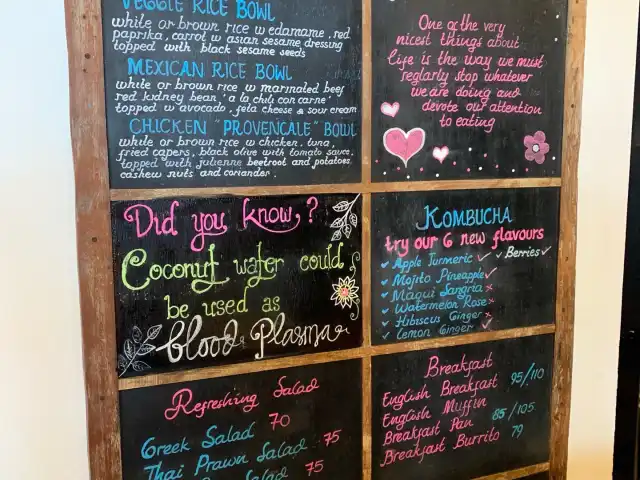 VEGGIE RICE BOWL
white or brown rice w edamame, red
paprika, carrot w asian sesame dressing
topped with black sesame seeds
MEXICAN RICE BOWL
white or brown rice w marinated beef
red kidney bean 'a la chili con carne'
topped w avocado, feta cheese & sour cream
CHICKEN "PROVENCALE" BOWL
white or brown rice w chicken, tuna,
fried capers, black olive with tomato sauce,
topped with julienne beetroot and potatoes,
cashew nuts and coriander.
One of the very
nicest things about
life is the way we must
reglarly stop whatever
we are doing and
devote our attention
to eating
Did you know,?
Coconut water could
be used as
blood Plasma
KOMBUCHA
try our 6 new flavours
✓ Apple Turmeric ✓ ✓ Berries ✓
✓ Mojito Pineapple ✓
✓ Maqui Sangria ×
✓ Watermelon Rose ×
✓ Hibiscus Ginger ×
✓ Lemon Ginger ✓
Refreshing Salad
Greek Salad 70
Thai Prawn Salad 75
Salad 75
Breakfast
English Breakfast 95/110
English Muffin
Breakfast Pan 85/105
Breakfast Burrito 79